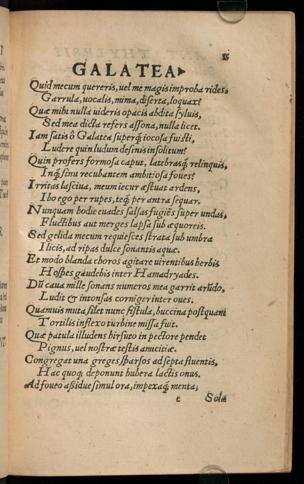 GALATEA
Quid mecum quereris, uel me magis improba rides,
Garrula, uocalis, mima, diserta, loquax?
Quæ mihi nulla uideris opacis abdita syluis,
Sed mea dicta refers assona, nulla licet.
Iam satis ô Galatea superq́; iocosa fuisti,
Ludere quin ludum desinis insolitum?
Quin profers formosa caput, latebrasq́; relinquis,
Inq́; sinu recubantem ambitiosa foues?
Irritas lasciua, meum iecur æstuat ardens,
Ibo ego per rupes, teq́; per antra sequar.
Nunquam hodie euades salsas fugiẽs super undas,
Fluctibus aut merges lapsa sub æquoreis.
Sed gelida mecum requiesces strata sub umbra
Ilicis, ad ripas dulce sonantis aquæ.
Et modo blanda choros agitare uirentibus herbis
Hospes gaudebis inter Hamadryades.
Dũ caua mille sonans numeros mea garrit arũdo,
Ludit & intonsas corniger inter oues.
Quamuis muta silet nunc fistula, buccina postquam
Tortilis inflexo turbine missa fuit.
Quæ patula illudens hirsuto in pectore pendet
Pignus, uel nostræ testis amicitiæ.
Congregat una greges sparsos ad septa fluentis,
Hac quoq; deponunt hubera lactis onus.
Ad foueo aßidue simul ora, impexaq́; menta,
c Sola